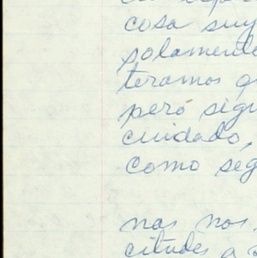 cosa suy
solamente
teramos q
peró sigu
cuidado,
como seg
nas nos
citudes a